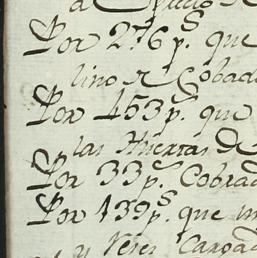 Por 276 p.s que
lino de Cobad
Por 153 p.s que
las Huertas de
Por 33 p.s Cobrad
Por 139 p.s que
y Yeres Cargad